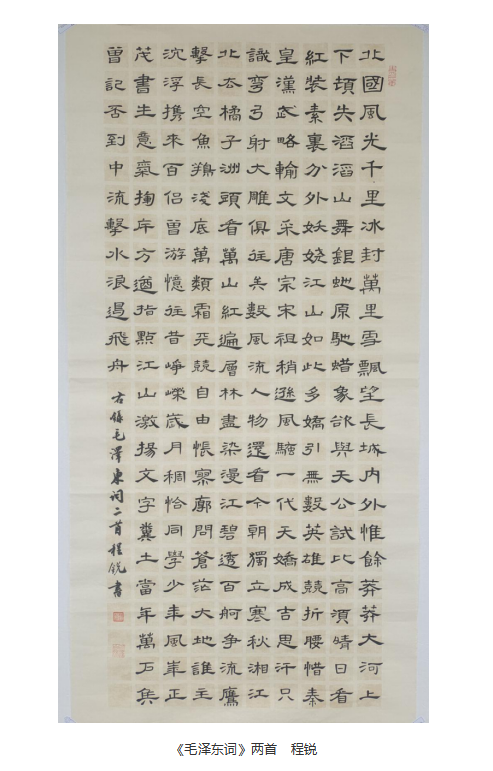 北國風光千里冰封萬里雪飄望長城内外惟餘莽莽大河上
下頓失滔滔山舞銀蛇原馳蜡象欲與天公試比高須晴日看
紅裝素裹分外妖嬈江山如此多嬌引無數英雄競折腰惜秦
皇漢武略輸文采唐宗宋祖稍遜風騷一代天嬌成吉思汗只
識彎弓射大雕俱往矣數風流人物還看今朝獨立寒秋湘江
北去橘子洲頭看萬山紅遍層林盡染漫江碧透百舸争流鷹
擊長空魚翔淺底萬類霜天競自由悵寥廓問蒼茫大地誰主
沉浮攜來百侣曾游憶往昔崢嶸歲月稠恰同學少年風華正
茂書生意氣揮斥方遒指點江山激揚文字糞土當年萬户侯
曾記否到中流擊水浪遏飛舟
右錄毛澤東詞二首程銳書
《毛泽东词》两首 程锐